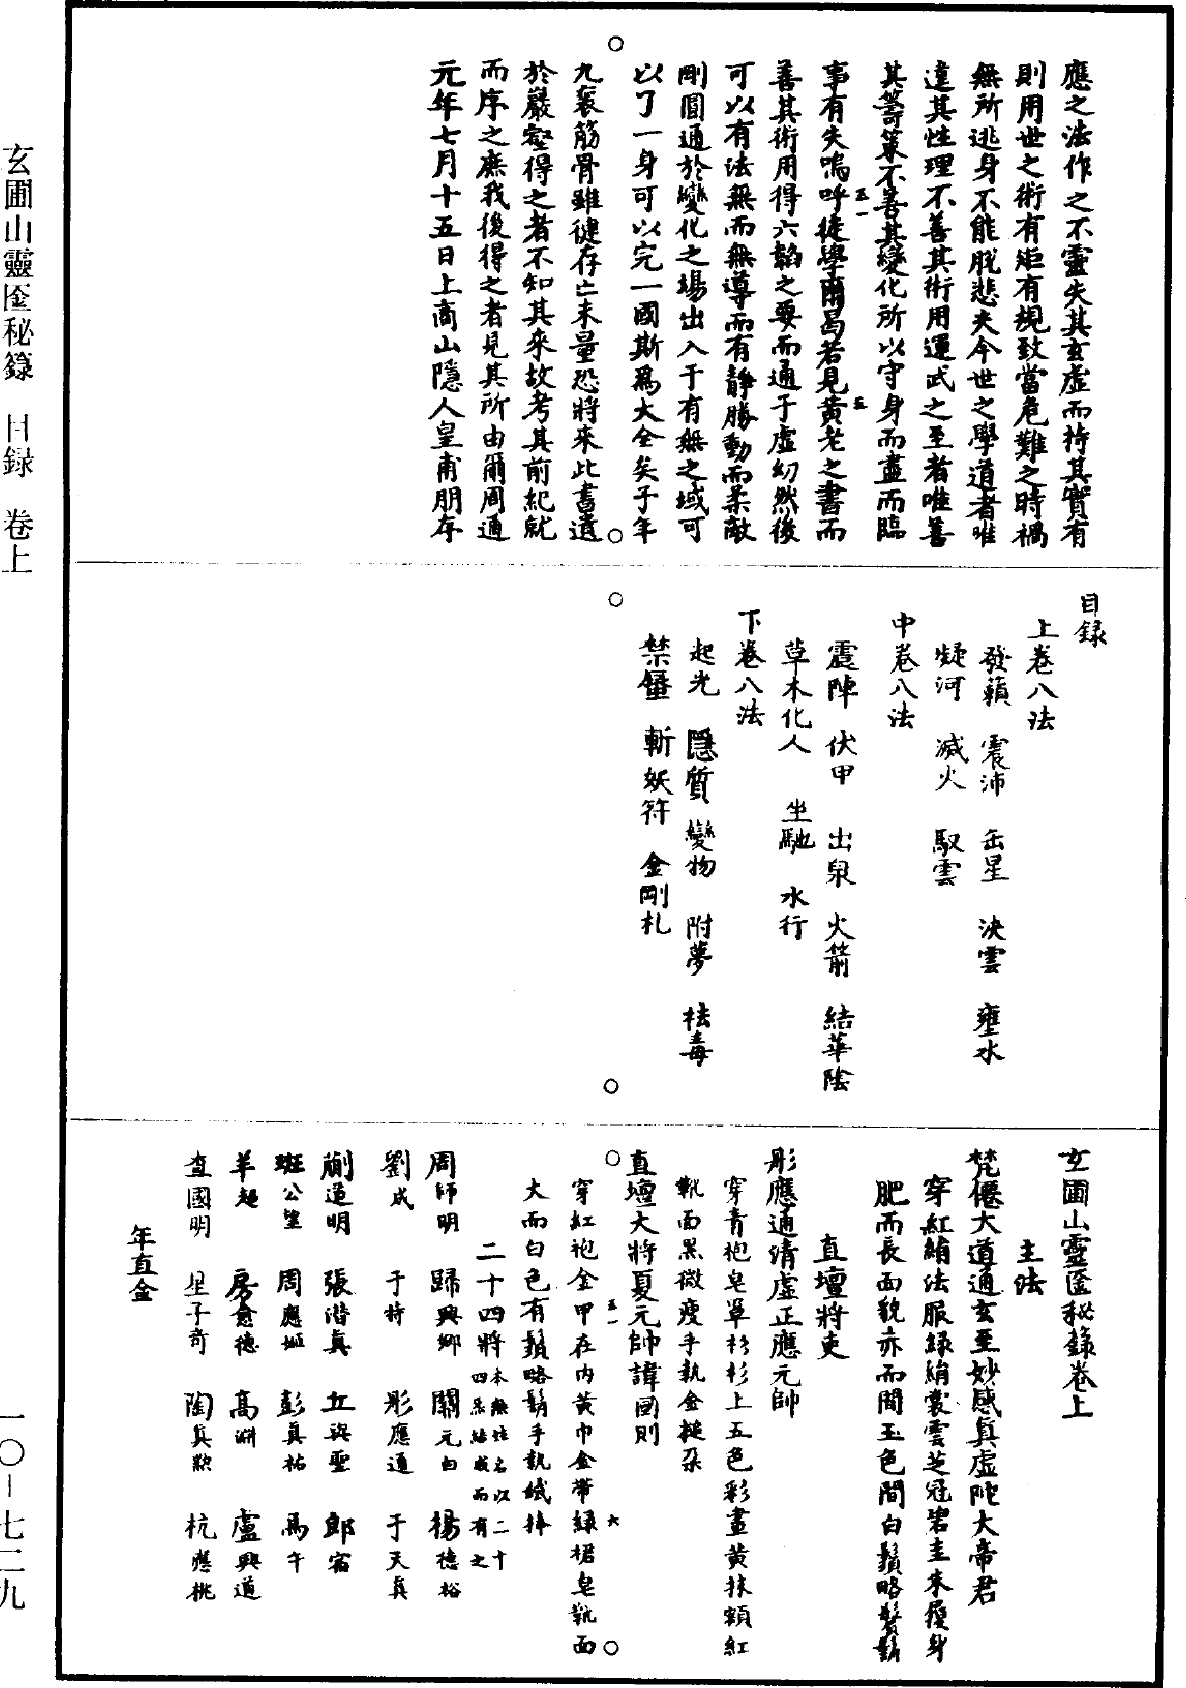 應之法作之不靈失其玄虛而持其實有
則用世之術有矩有規致當危難之時禍
無所逃身不能脫悲夫今世之學道者唯
達其性理不善其術用運武之至者唯善
其籌策不善其變化所以守身而盡而臨
事有失嗚呼徒學爾曷若見黃老之書而
善其術用得六韜之要而通于虛幻然後
可以有法無而無導而有靜勝動而柔敵
剛圓通於變化之場出入于有無之域可
以了一身可以完一國斯爲大全矣予年
九袠筋骨雖健存亡未量恐將來此書遺
於巖壑得之者不知其來故考其前紀就
而序之庶我後得之者見其所由爾周通
元年七月十五日上商山隱人皇甫朋存
目錄
上卷八法
發籟 震沛 缶星 決雲 壅水
凝河 滅火 馭雲
中卷八法
震陣 伏甲 出泉 火箭 結華陰
草木化人 坐馳 水行
下卷八法
起光 隱質 變物 附夢 祛毒
禁蜃 斬妖符 金剛札
玄圃山靈匳秘籙卷上
主法
梵僊大道通玄至妙感真虛陀大帝君
穿紅綃法服綠綃裳雲芝冠碧圭朱履身
肥而長面貌赤而間玉色間白鬚略鬢鬍
直壇將吏
彤應通清虛正應元帥
穿青袍皂罩衫衫上五色彩畫黃抹額紅
靴面黑微瘦手執金撾朶
直壇大將夏元帥諱國則
穿紅袍金甲在內黃巾金帶綠裙皂靴面
大而白色有鬚略鬍手執鐵棒
二十四將本無姓名以二十四炁結成而有之
周師明 歸興鄉 關元白 楊德裕
劉成 于特 彤應通 于天真
蒯道明 張潛真 丘从聖 郎宿
班公望 周應姬 彭真祐 馬午
羊起 房愈德 高淵 盧興道
查國明 星子奇 陶真欺 杭應桃
年直金
玄圃山靈匳秘籙 目録 卷上
一〇—七三九